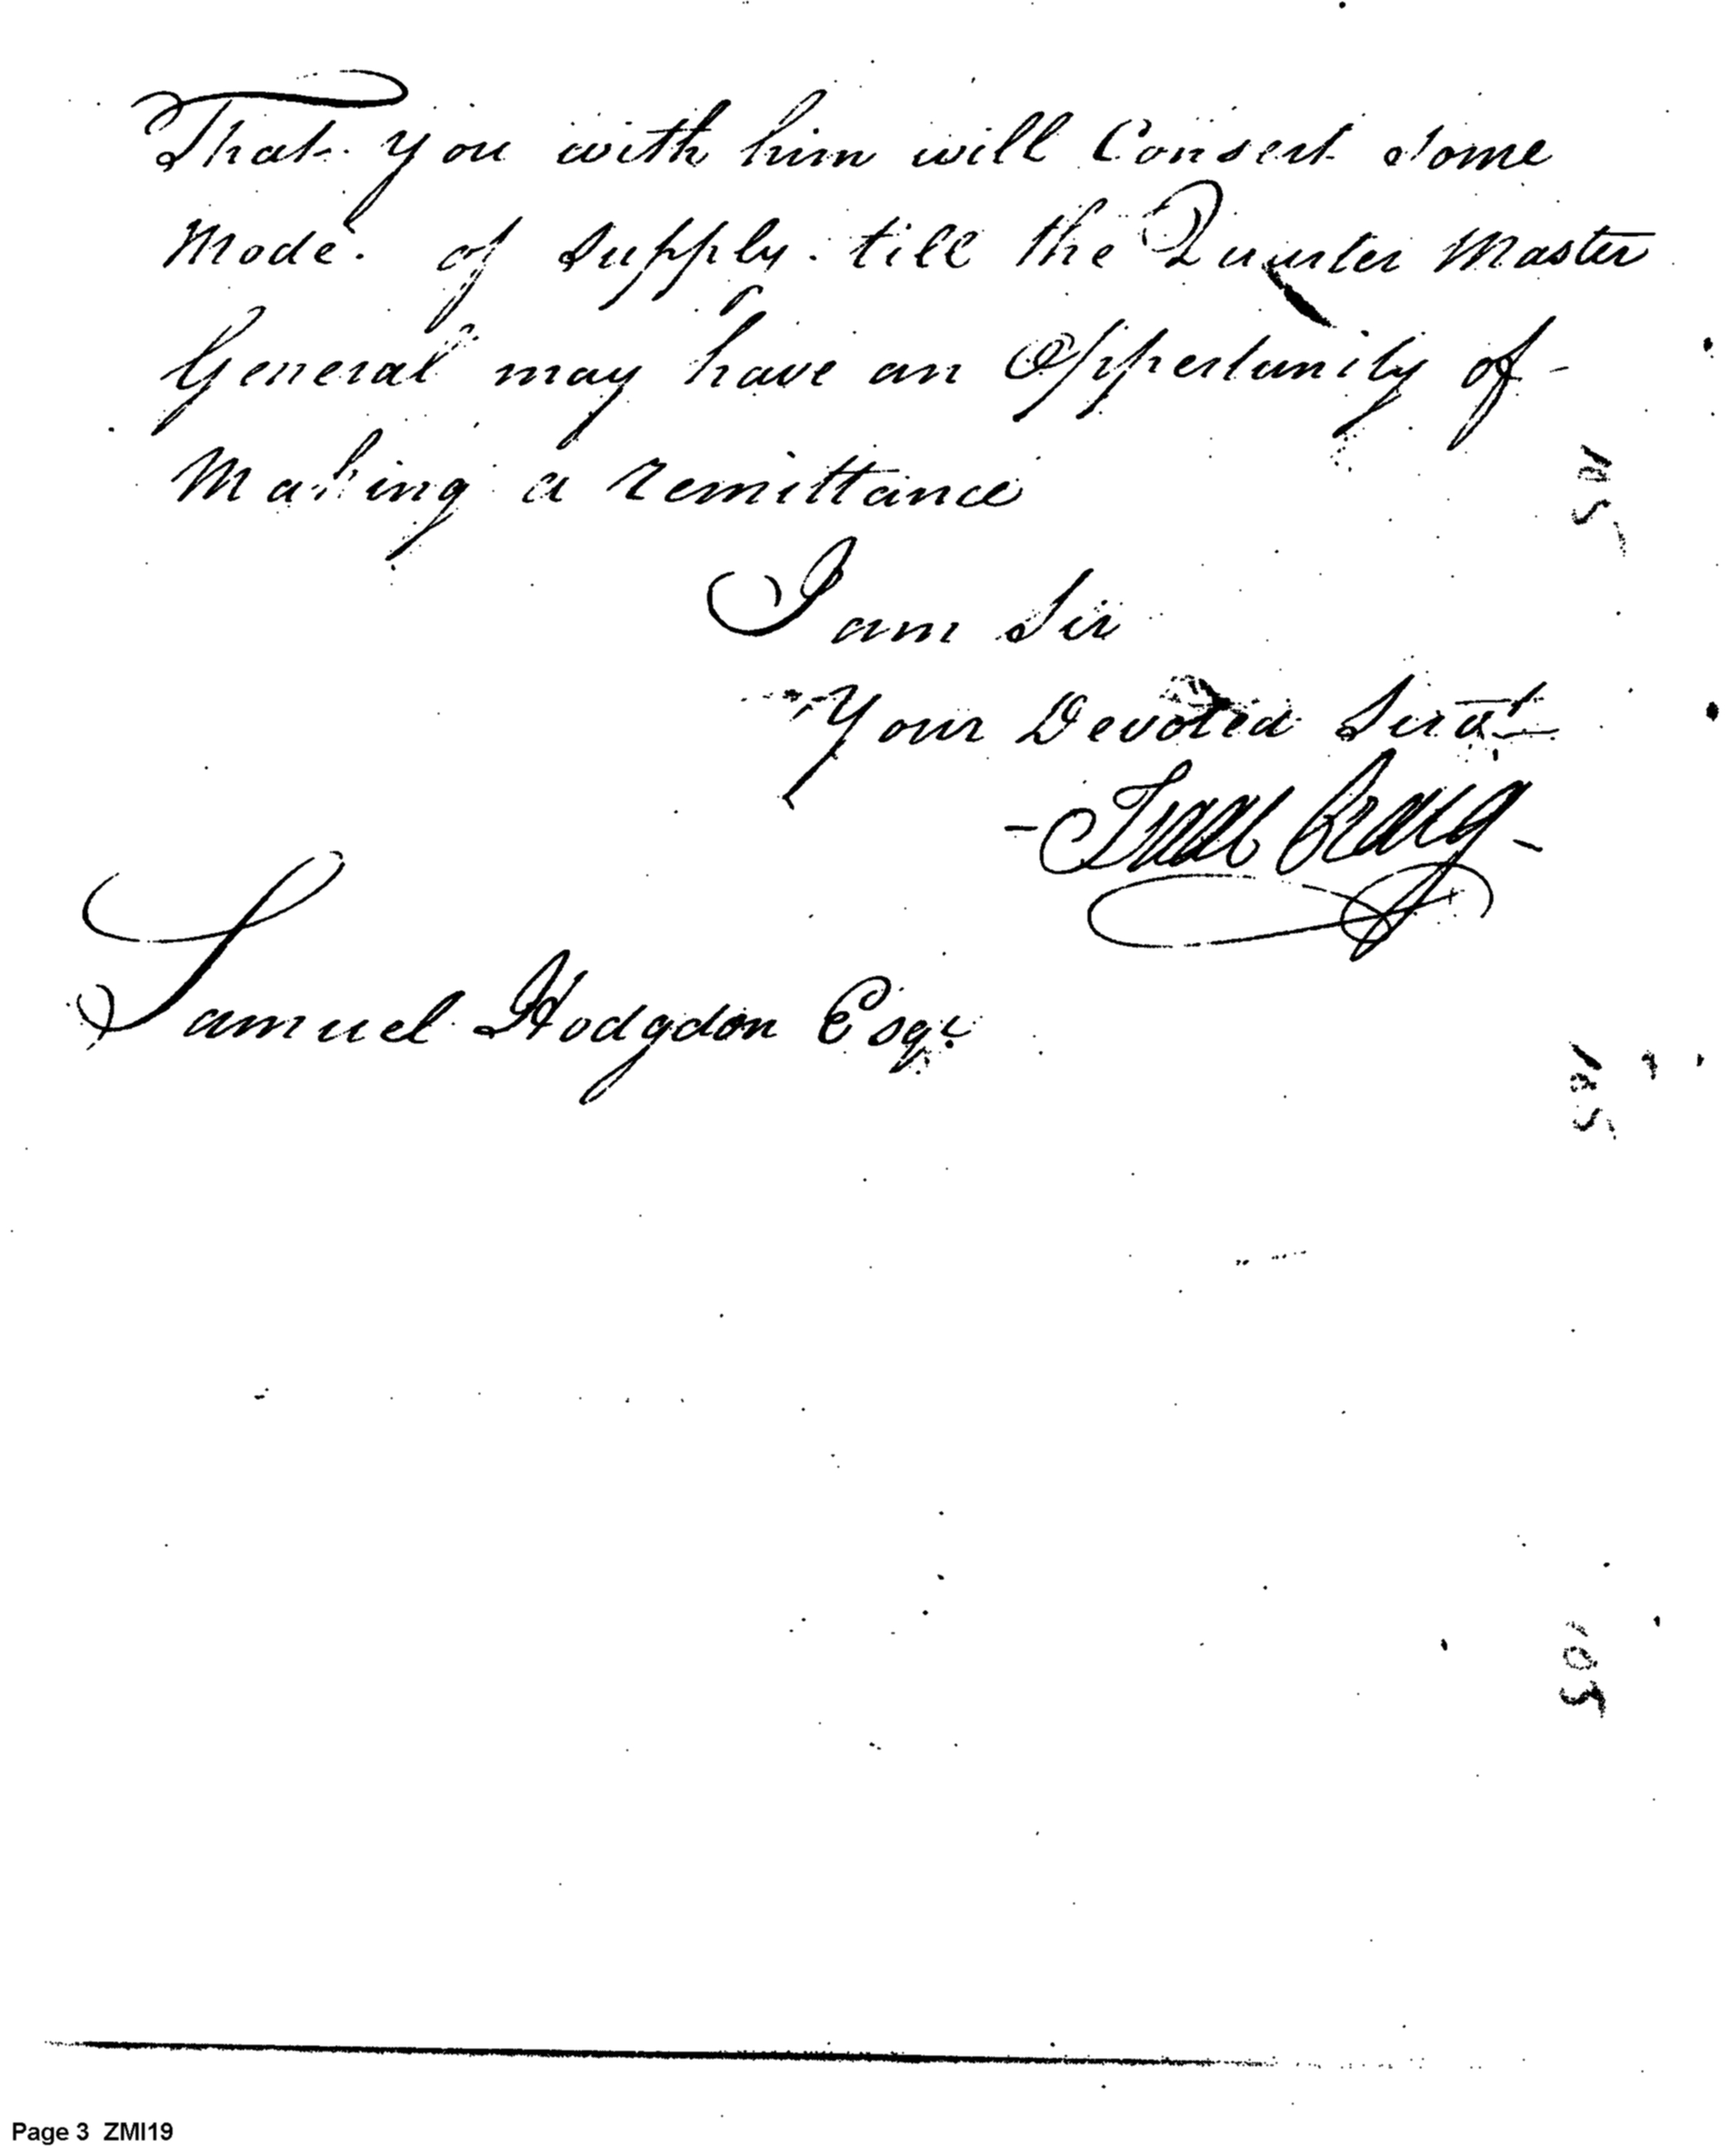 That you with him will Consert some
Mode of supply till the Quarter Master
General may have an Oppertunity of -
Making a remittance
I am Sir
Your Devoted Servt
- Isaac Craig -
Samuel Hodgdon Esqr
Page 3 ZMI19